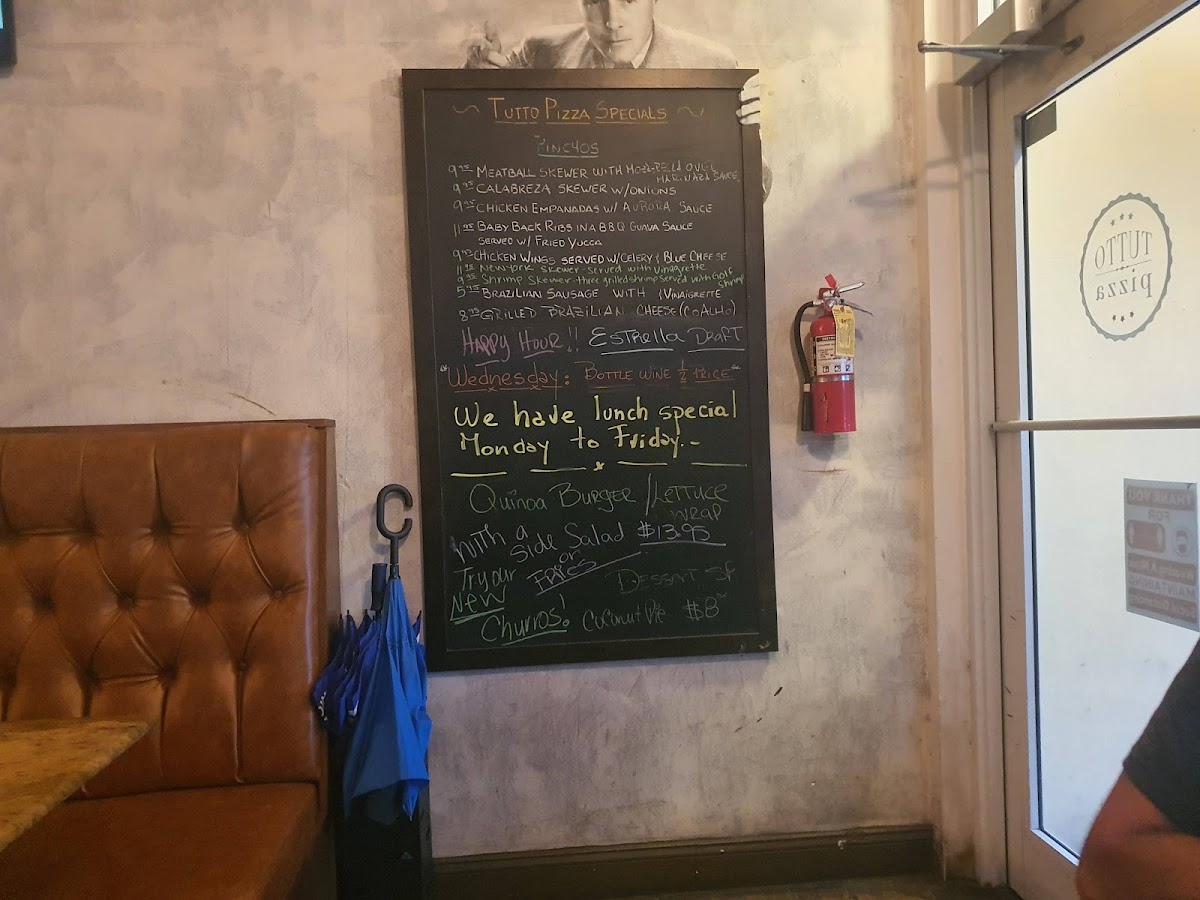 ~ TUTTO PIZZA SPECIALS ~
PINCHOS
9.95 MEATBALL SKEWER WITH MOZZARELLA OVER
MARINARA SAUCE
9.95 CALABREZA SKEWER W/ONIONS
9.95 CHICKEN EMPANADAS W/ AURORA SAUCE
11.95 BABY BACK RIBS IN A BBQ GUAVA SAUCE
SERVED W/ FRIED YUCCA
9.95 CHICKEN WINGS SERVED W/CELERY & BLUE CHEESE
11.95 NEW YORK SKEWER - SERVED WITH VINAIGRETTE
9.95 Shrimp Skewer - three grilled shrimp served with Golf
5.95 BRAZILIAN SAUSAGE WITH VINAIGRETTE
8.95 GRILLED BRAZILIAN CHEESE (COALHO)
HAPPY HOUR!! ESTRELLA DRAFT
"WEDNESDAY: BOTTLE WINE ½ PRICE"
We have lunch special
Monday to Friday..
QUINOA BURGER / LETTUCE
WRAP
WITH A Side Salad $13.95
or
FRIES
Try our
NEW
Churros!
DESSERT SF
Coconut Pie $8
TUTTO
pizza
THANK YOU
FOR